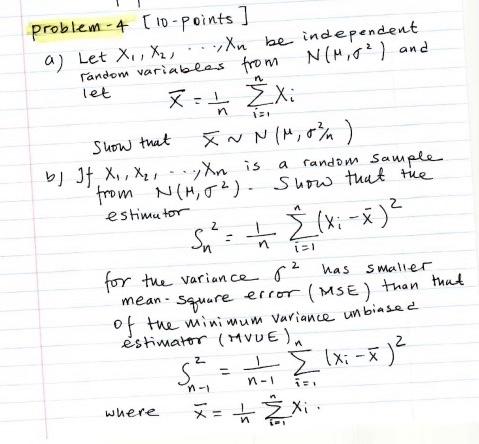 problem-4 [10-points]
a) Let X₁, X₂, ..., Xn be independent
random variables from N(μ, σ²) and
let X̄ = 1/n Σᵢ₌₁ⁿ Xi
Show that X̄ ~ N(μ, σ²/n)
b) If X₁, X₂, ..., Xn is a random sample
from N(μ, σ²). Show that the
estimator
Sn² = 1/n Σᵢ₌₁ⁿ (Xi - x̄)²
for the variance σ² has smaller
mean-square error (MSE) than that
of the minimum variance unbiased
estimator (MVUE)
S²n-1 = 1/(n-1) Σᵢ₌₁ⁿ (Xi - x̄)²
where X̄ = 1/n Σᵢ₌₁ⁿ Xi.